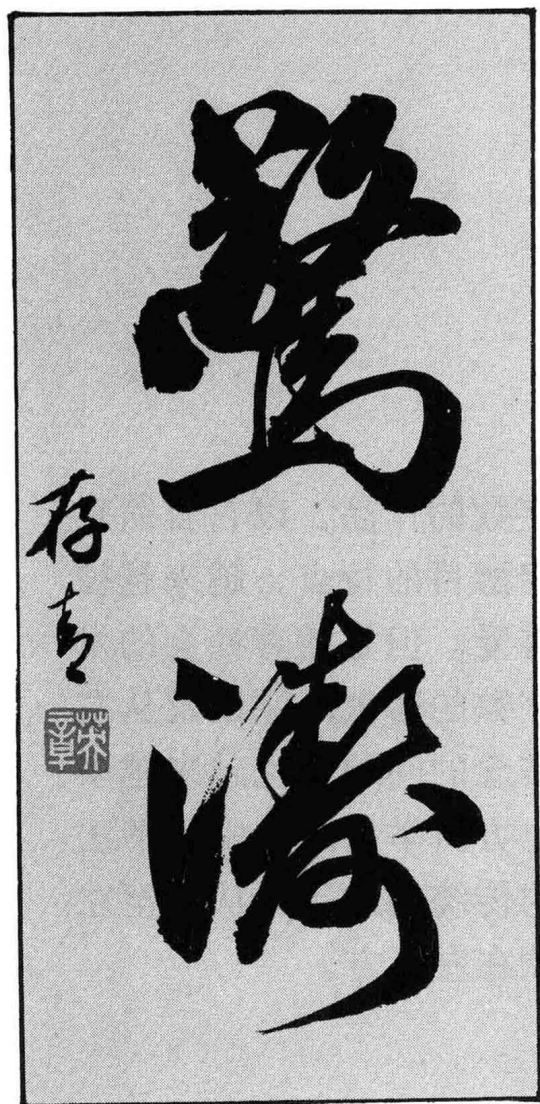 驚濤
存青